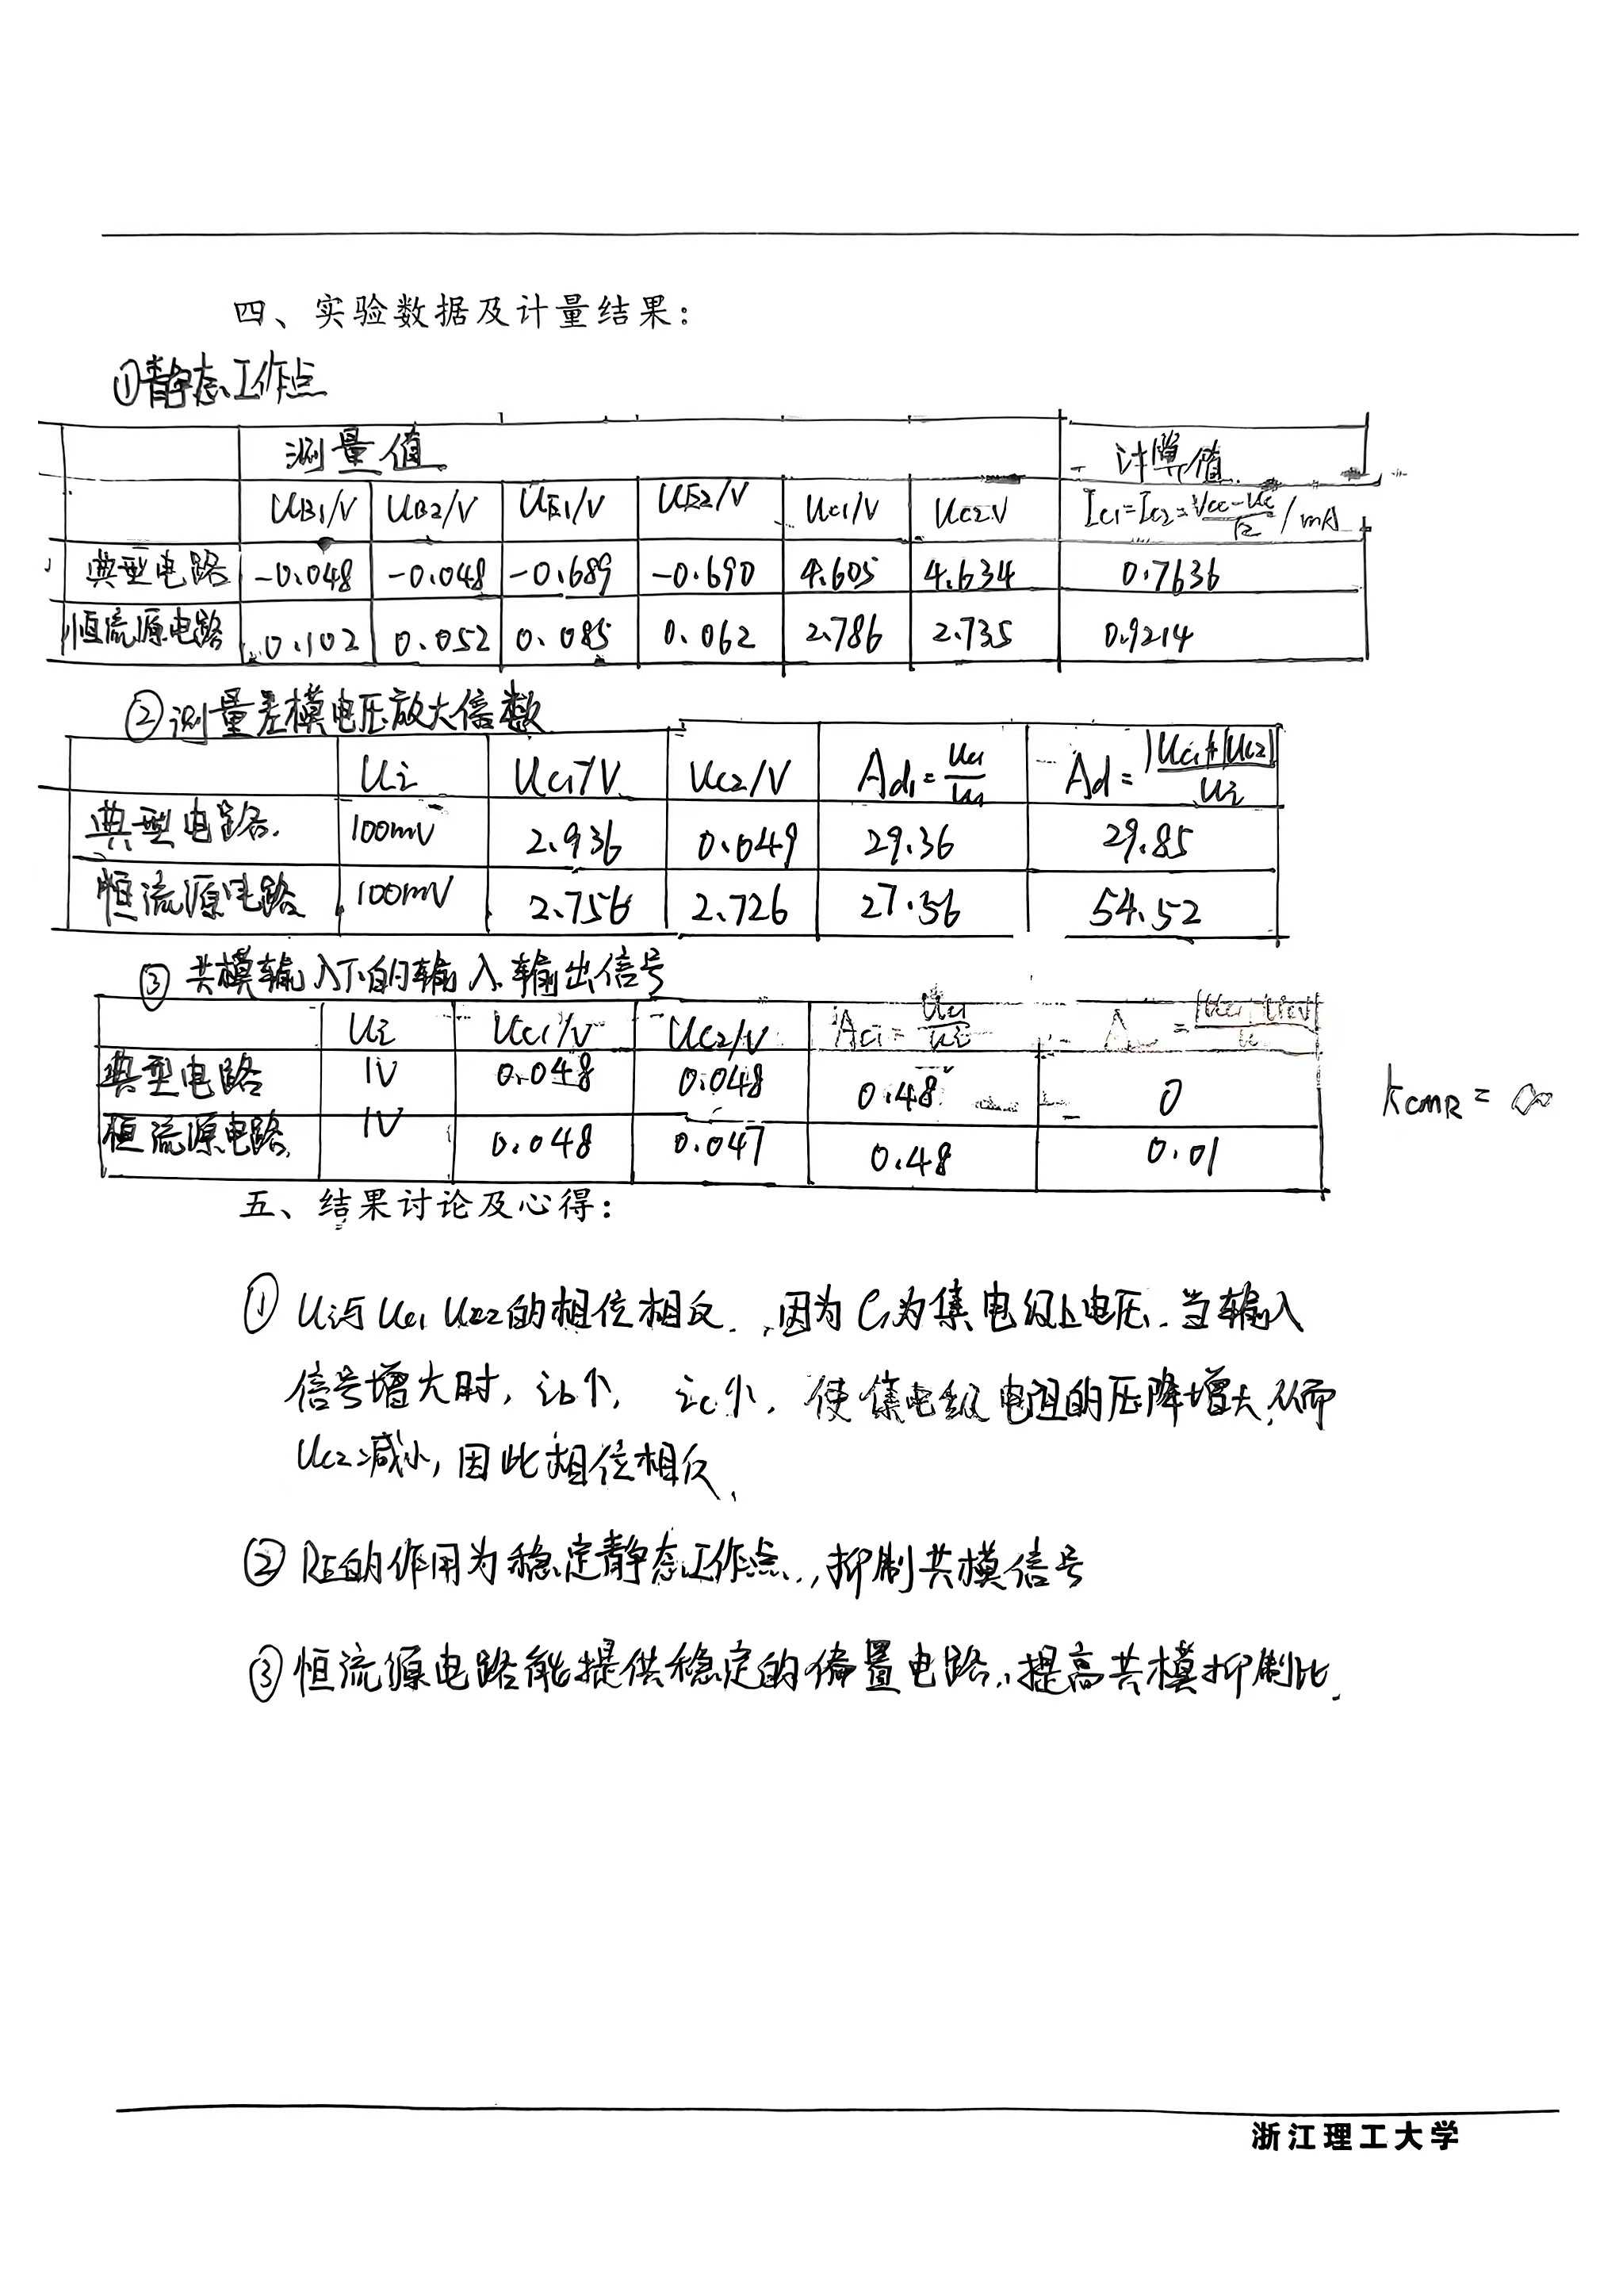 四、实验数据及计量结果：
①静态工作点
测量值 计算值
UB1/V UB2/V UE1/V UE2/V UC1/V UC2V IC1=IC2=VCC-UC/R /mA
典型电路 -0.048 -0.048 -0.689 -0.690 4.605 4.634 0.7636
恒流源电路 0.102 0.052 0.085 0.062 2.786 2.735 0.9214
②测量差模电压放大倍数
Ui UC1/V UC2/V Ad1=UC1/Ui Ad=|UC1|+|UC2|/Ui
典型电路. 100mV 2.936 0.049 29.36 29.85
恒流源电路 100mV 2.756 2.726 27.56 54.52
③共模输入下的输入输出信号
Ui UC1/V UC2/V AC1=UC1/Ui
典型电路 1V 0.048 0.048 0.48 0
KCMR=∞
恒流源电路. 1V 0.048 0.047 0.48 0.01
五、结果讨论及心得：
① Ui与UC1 UC2的相位相反. 因为C1为集电级上电压.当输入
信号增大时, ib↑, ic↑, 使集电级电阻的压降增大,从而
UC2减小,因此相位相反.
②RE的作用为稳定静态工作点.,抑制共模信号
③恒流源电路能提供稳定的偏置电路,提高共模抑制比.
浙江理工大学